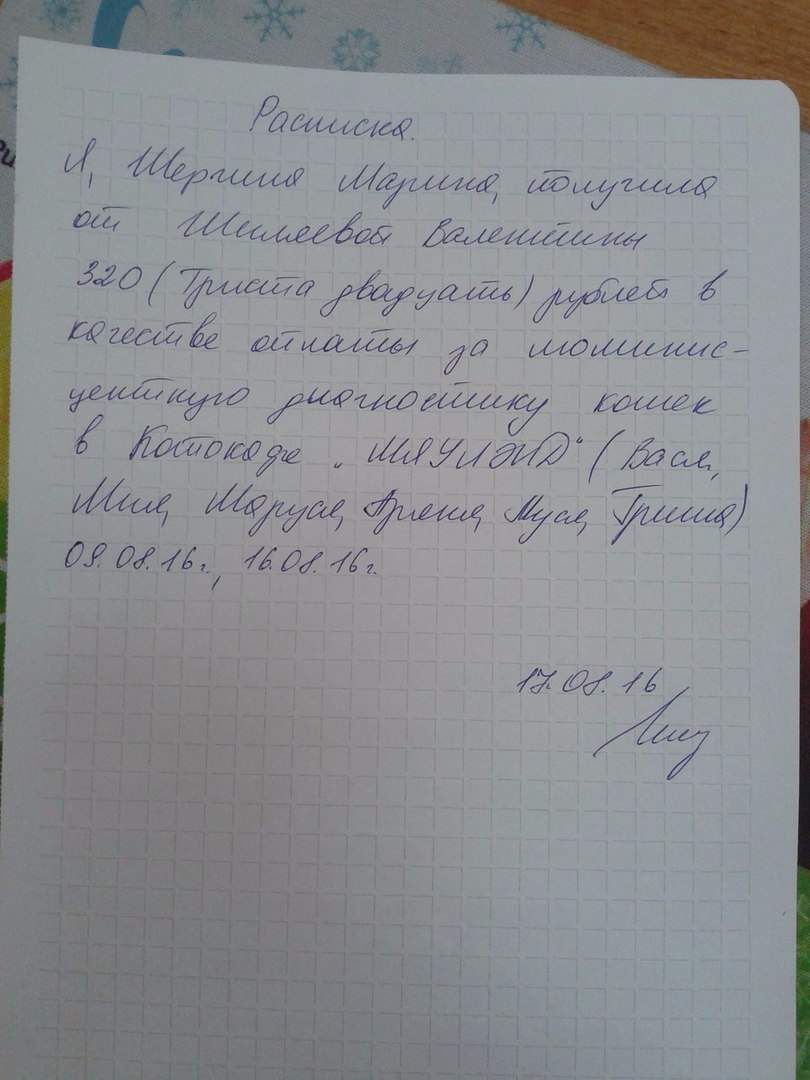 Расписка.
Я, Шергина Марина, получила
от Шилеевой Валентины
320 (Триста двадцать) рублей в
качестве оплаты за люминис-
центную диагностику кошек
в Котокафе „МЯУЛЭНД" (Вася,
Мия, Маруся, Аряня, Муся, Гриша)
09.08.16г., 16.08.16г.
17.08.16